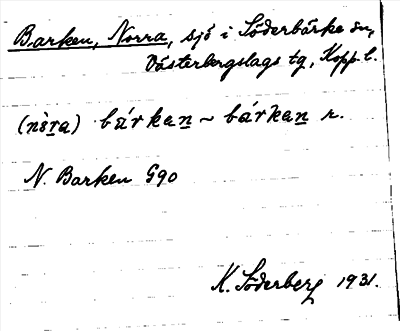 Barken, Norra, sjö i Söderbärke sn,
Västerbergslags tg, Kopp. l.
(nòra) bárkan ~ bárkan r.
N. Barken G90
K. Söderberg 1931.